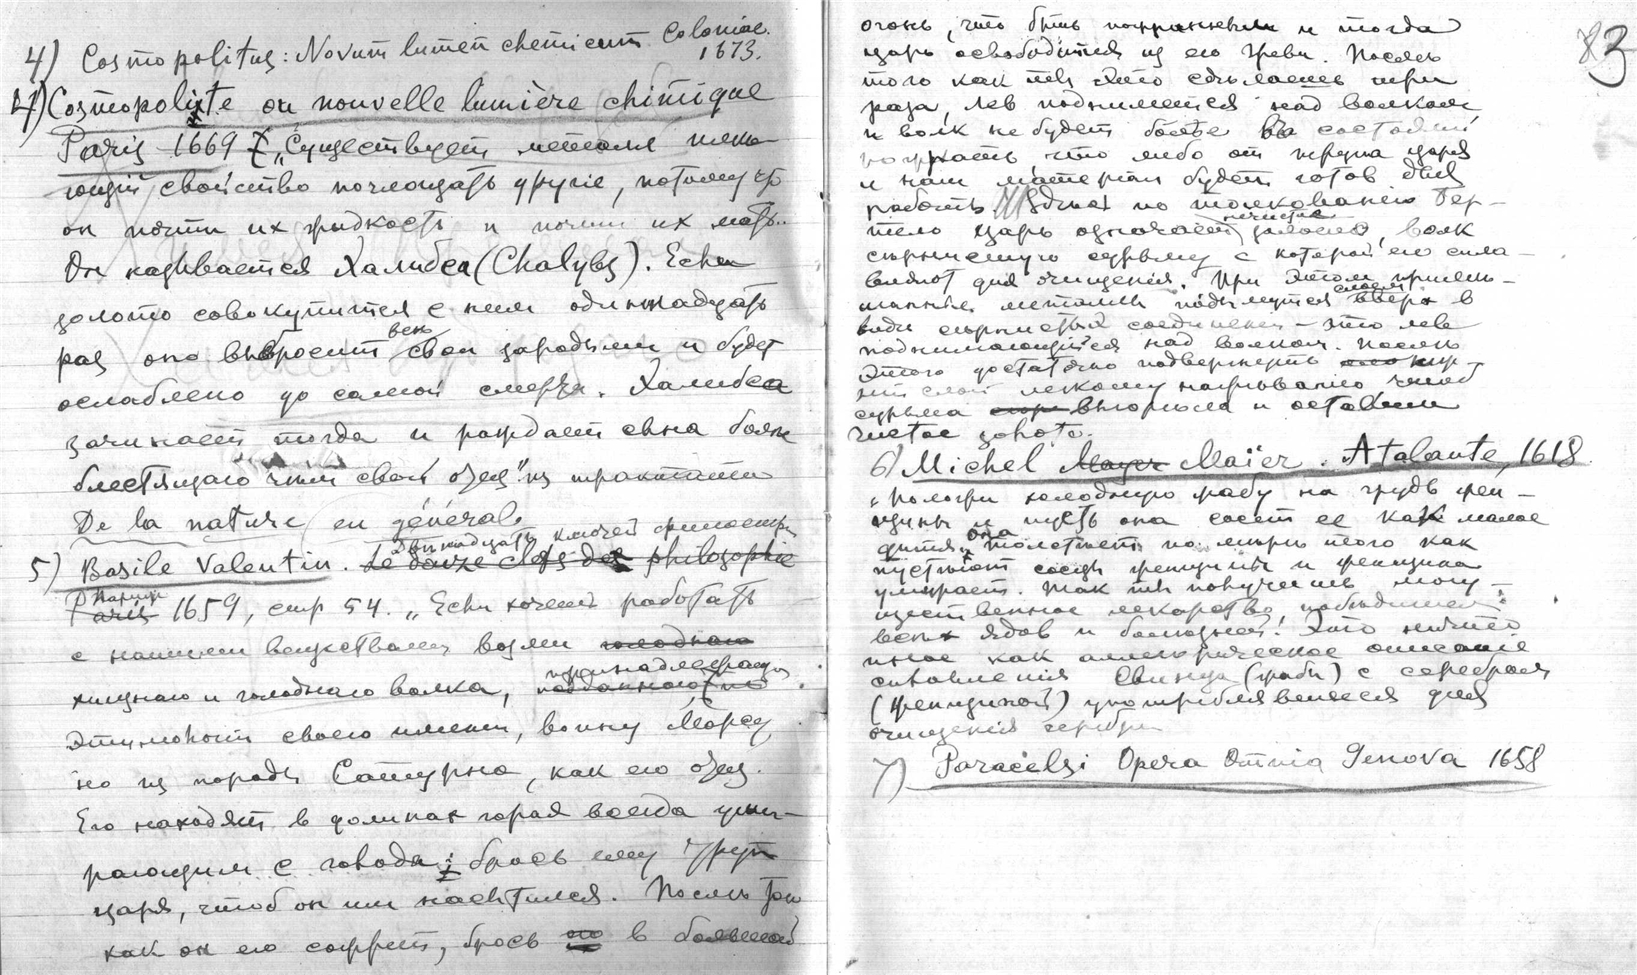 4) Cosmopolitus: Novum lumen chemicum Coloniae.
1673.
4) Cosmopolite ou nouvelle lumière chimique
Paris 1669 „Существует металл имею-
ющий свойство поглощать другие, потому что
он почти их жидкость и почти их мать.
Он называется Халибса (Chalybs). Если
золото совокупится с ним одиннадцать
раз оно выбросит свои зародыши и будет
ослаблено до самой смерти. Халибса
зачинает тогда и рождает сына более
блестящаго чем свой отец" из трактата
De la nature en général.
двенадцать ключей философии
5) Basile Valentin. Le douze clefs des philosophie
Париж
Paris 1659, стр 54. „Если хочешь работать
с нашими веществами возьми голоднаго
хищнаго и голоднаго волка, принадлежащаго
этимологии своего имени, воину Марсу
но из породы Сатурна, как его отец.
Его находят в долинах горах всегда уми-
рающим с голода; брось ему труп
царя, чтоб он им насытился. После того
как он его сожрет, брось его в большой
83
огонь, чтоб быть и тогда
царь освободится из его чрева. После
того как ты это сделаешь три
раза, лев поднимется над волком
и волк не будет более в состоянии
пожрать что либо от трупа царя
и наш материал будет готов для
работы. Здесь по толкованию Бер-
тело царь означает нечистое золото, волк
сернистую сурьму с которой его спла-
вляют для очищения. При этом примеш-
металлы подымутся слоем вверх в
виде сернистых соединений – это лев
поднимающийся над волком. После
этого достаточно подвергнуть
этот слой легкому нагреванию чтоб
сурьма выгорела и оставила
чистое золото.
6) Michel Mayer Maïer. Atalante, 1618.
„Положи холодную жабу на грудь жен-
щины и пусть она сосет ее как малое
дитя, она толстеет по мере того как
пустеют сосцы женщины и женщина
умирает. Так ты получишь могу-
щественное лекарство,
всех ядов и болезней! Это ничто
иное как аллегорическое описание
сплавления Свинца (жабы) с серебром
(женщиной) употреблявшееся для
очищения серебра
7) Paracelsi Opera Omnia Genova 1658